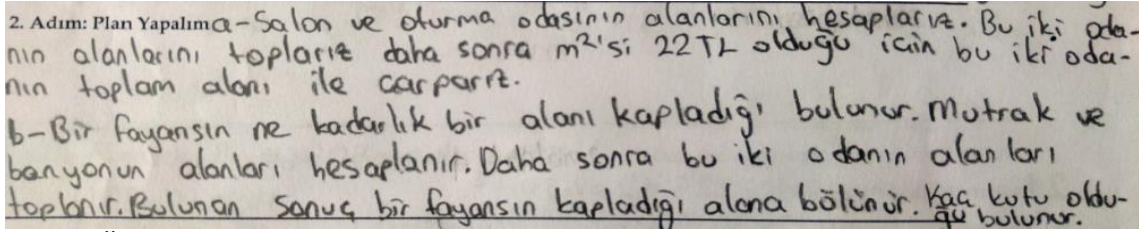 2. Adım: Plan Yapalım a-Salon ve oturma odasının alanlarını hesaplarız. Bu iki oda-
nın alanlarını toplarız daha sonra m²'si 22 TL olduğu için bu iki oda-
nın toplam alanı ile çarparız.
b-Bir fayansın ne kadarlık bir alanı kapladığı bulunur. Mutrak ve
banyonun alanları hesaplanır. Daha sonra bu iki odanın alanları
toplanır. Bulunan sonuç bir fayansın kapladığı alana bölünür. Kaç kutu oldu-
ğu bulunur.